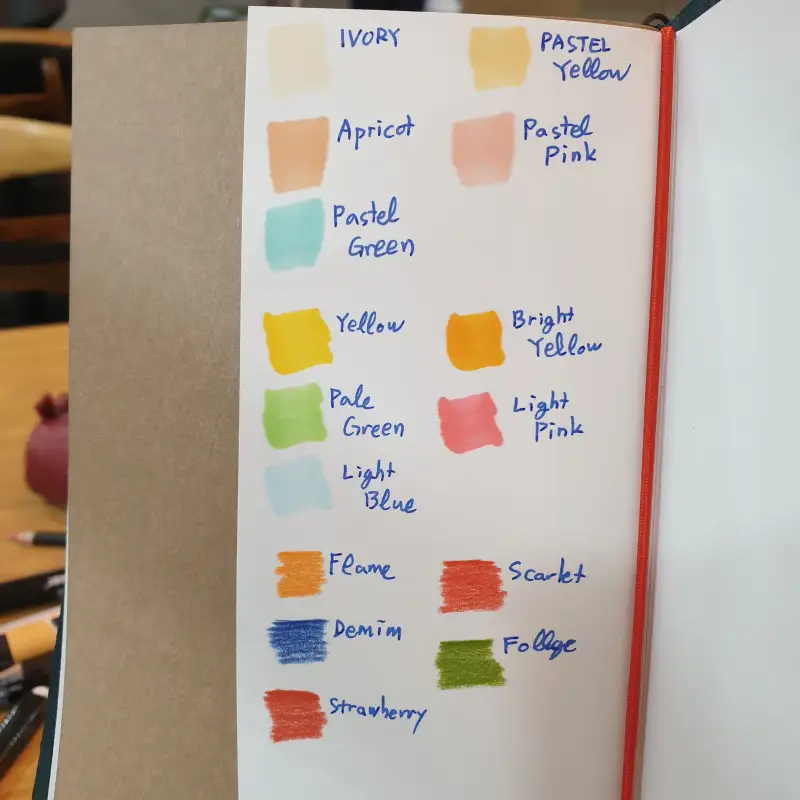 IVORY
PASTEL
Yellow
Apricot
Pastel
Pink
Pastel
Green
Yellow
Bright
Yellow
Pale
Green
Light
Pink
Light
Blue
Flame
Scarlet
Demim
Strawberry